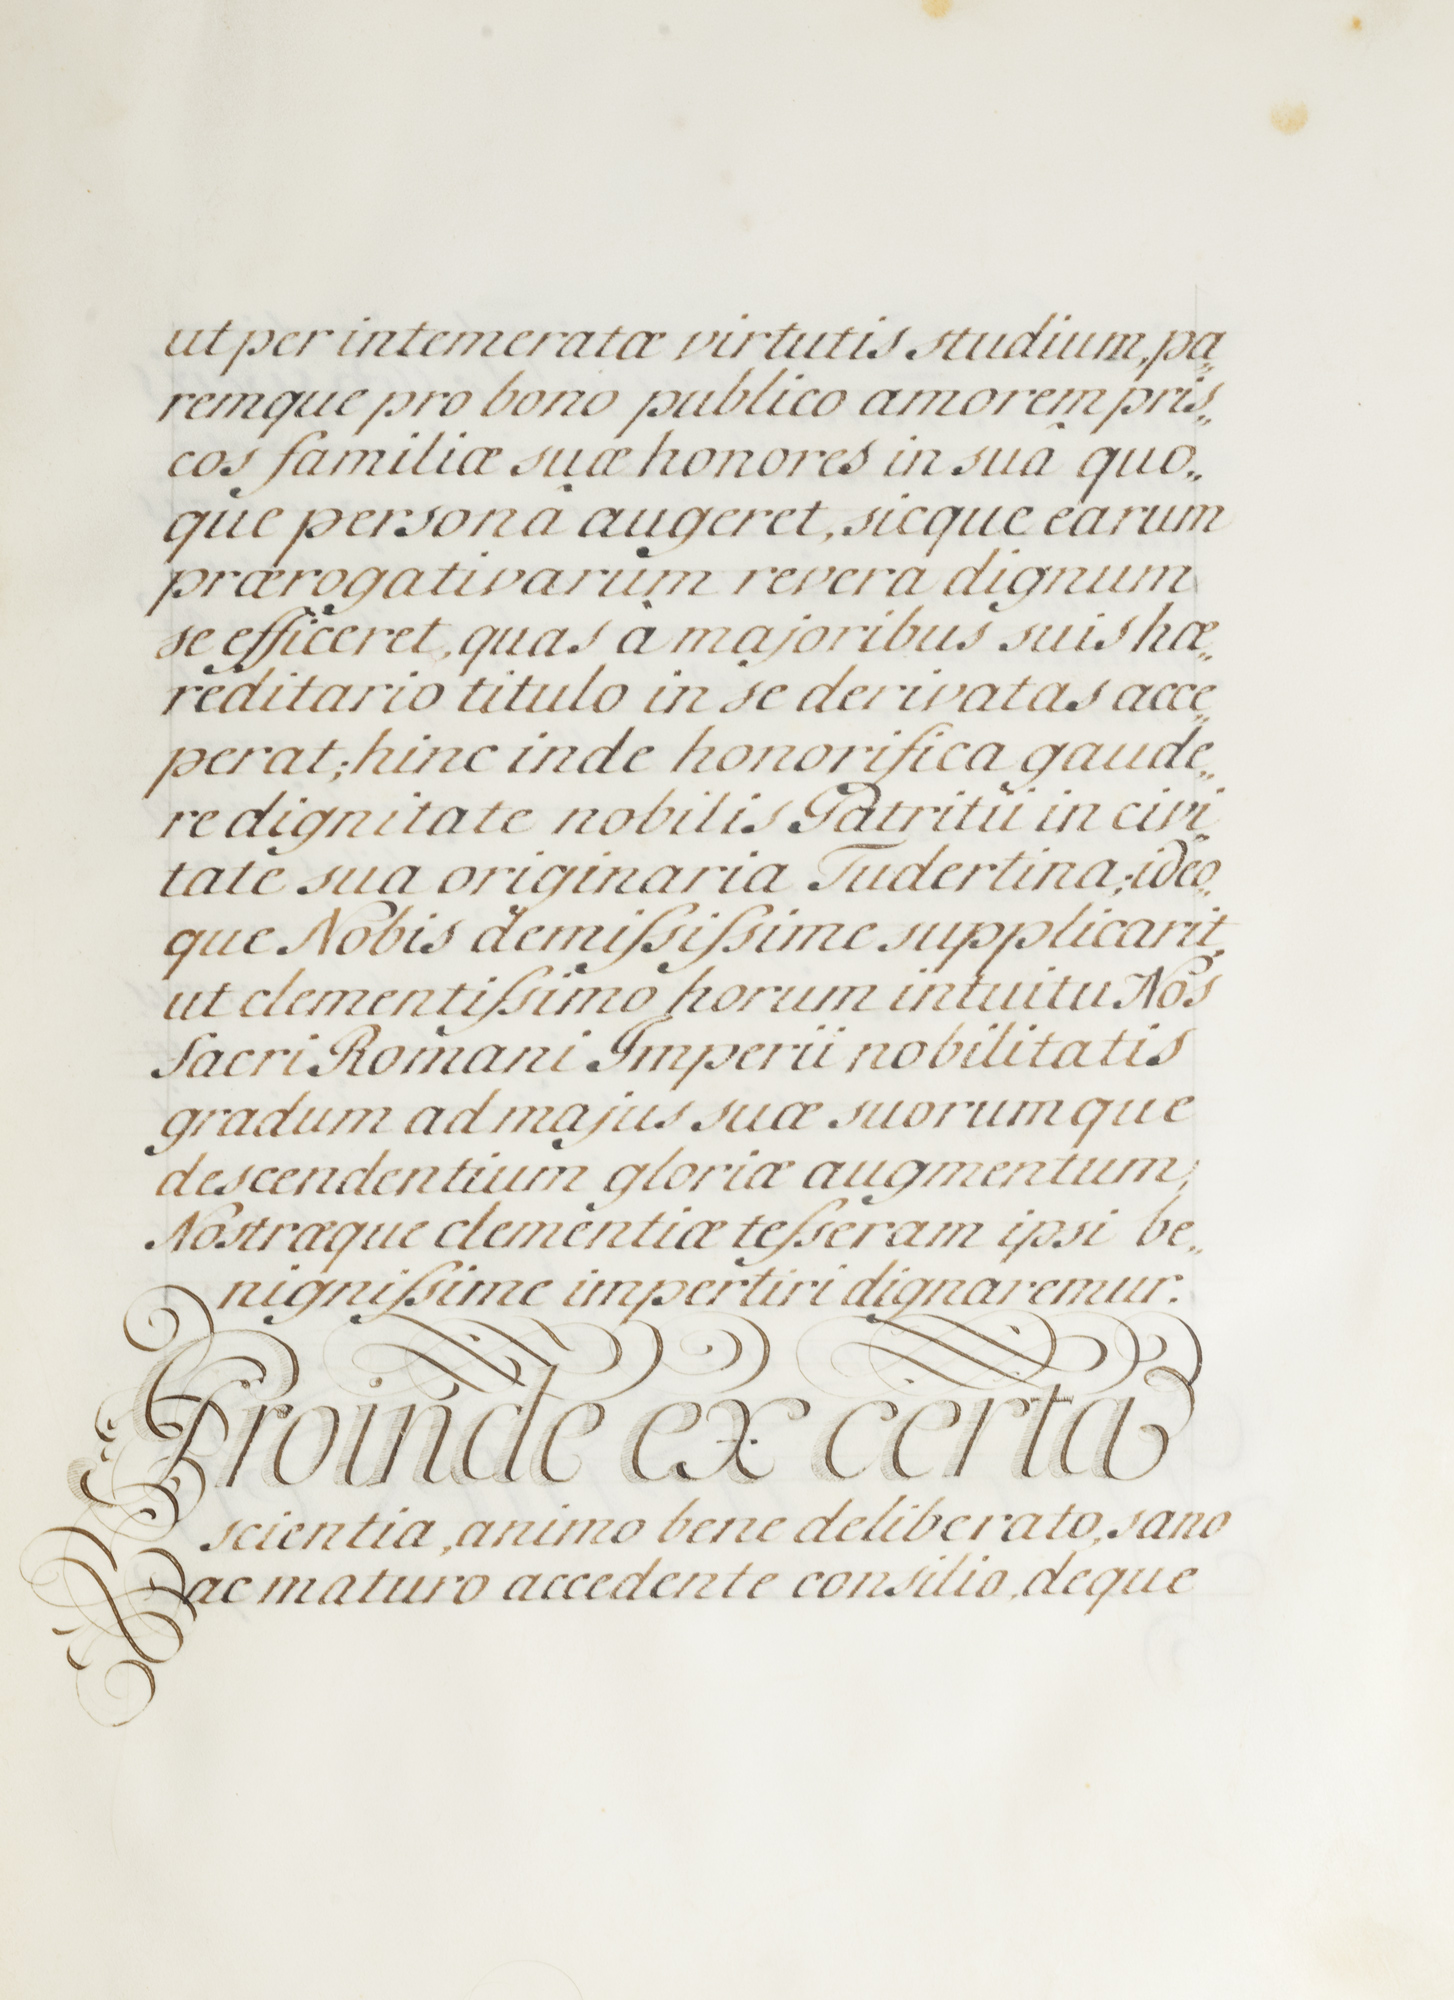 ut per intemeratæ virtutis studium, pa„
remque pro bono publico amorem pris„
cos familiæ suæ honores in suâ quo„
que personâ augeret, sicque earum
prærogativarum revera dignum
se efficeret, quas à majoribus suis hæ„
reditario titulo in se derivatas acce„
perat; hinc inde honorifica gaude„
re dignitate nobilis Patritii in civi„
tate sua originaria Tudertina; ideo„
que Nobis demiſsiſsime supplicarit,
ut clementiſsimo horum intuitu Nos
Sacri Romani Imperii nobilitatis
gradum ad majus suæ suorumque
descendentium gloriæ augmentum,
Nostræque clementiæ teſseram ipsi be„
nigniſsime impertiri dignaremur.
Proinde ex certa
scientia, animo bene deliberato, sano
ac maturo accedente consilio, deque